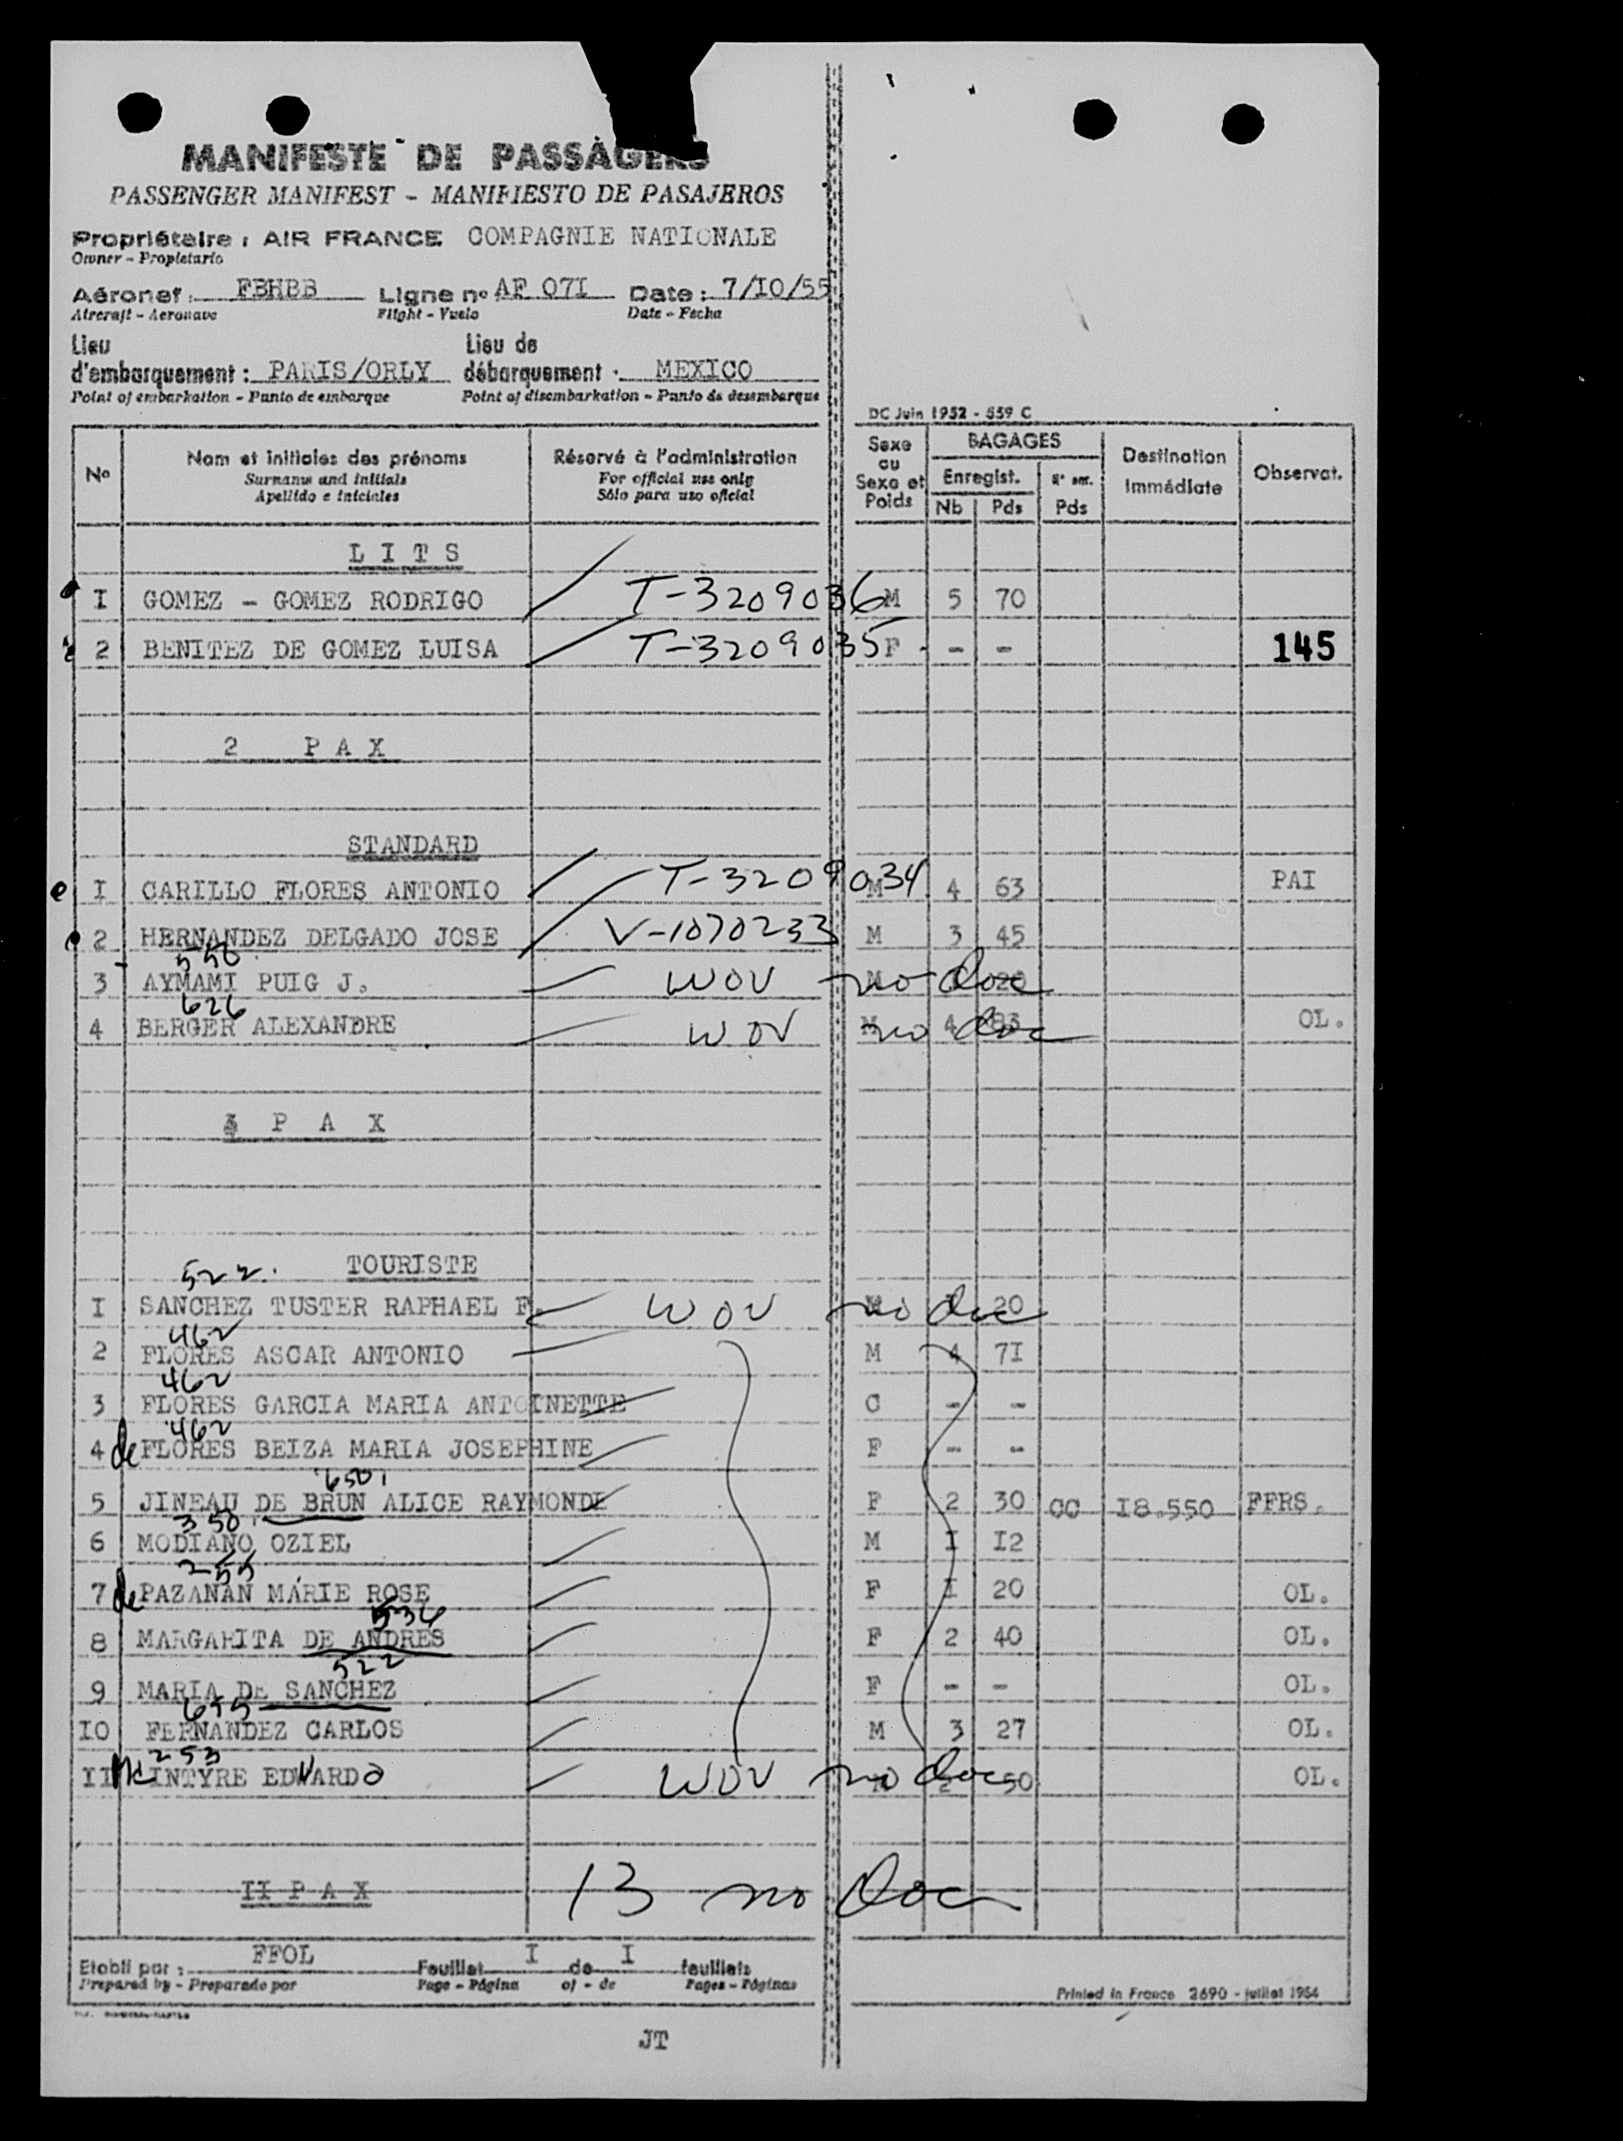 MANIFESTE DE PASSAGERS
PASSENGER MANIFEST - MANIFIESTO DE PASAJEROS
Propriétaire : AIR FRANCE COMPAGNIE NATIONALE
Owner - Propietario
Aéronef : FBHBB Ligne nº AF 07I Date : 7/IO/55
Aircraft - Aeronave Flight - Vuelo Date - Fecha
Lieu d'embarquement : PARIS/ORLY Lieu de débarquement : MEXICO
Point of embarkation - Punto de embarque Point of disembarkation - Punto de desembarque
DC Juin 1952 - 559 C
Nº Nom et initiales des prénoms Réservé à l'administration Sexe ou Sexe et Poids BAGAGES Destination immédiate Observat.
Surname and initials For official use only Enregist. Nº
Apellido e iniciales Sólo para uso oficial Nb Pds Pds
L I T S
I GOMEZ - GOMEZ RODRIGO T-3209036 M 5 70
2 BENITEZ DE GOMEZ LUISA T-3209035 F - - 145
2 P A X
STANDARD
I CARILLO FLORES ANTONIO T-3209034 M 4 63 PAI
2 HERNANDEZ DELGADO JOSE V-1070233 M 3 45
550
3 AYMAMI PUIG J. WOV no doc M 20
626
4 BERGER ALEXANDRE WOV no doc M 4 83 OL.
P A X
522. TOURISTE
I SANCHEZ TUSTER RAPHAEL F. WOV no doc M 20
462
2 FLORES ASCAR ANTONIO M 4 7I
462
3 FLORES GARCIA MARIA ANTOINETTE C - -
462
4 de FLORES BEIZA MARIA JOSEPHINE F - -
650
5 JINEAU DE BRUN ALICE RAYMONDE F 2 30 CC I8.550 FFRS.
350
6 MODIANO OZIEL M I I2
255
7 de PAZANAN MARIE ROSE F I 20 OL.
536
8 MARGARITA DE ANDRES F 2 40 OL.
522
9 MARIA DE SANCHEZ F - - OL.
655
IO FERNANDEZ CARLOS M 3 27 OL.
253
II Mc INTYRE EDWARD WOV no doc 2 50 OL.
II P A X 13 no Doc
Etabli par : FFOL Feuillet I de I feuillets
Prepared by - Preparado por Page - Página of - de Pages - Páginas
Printed in France 2690 - juillet 1954
JT